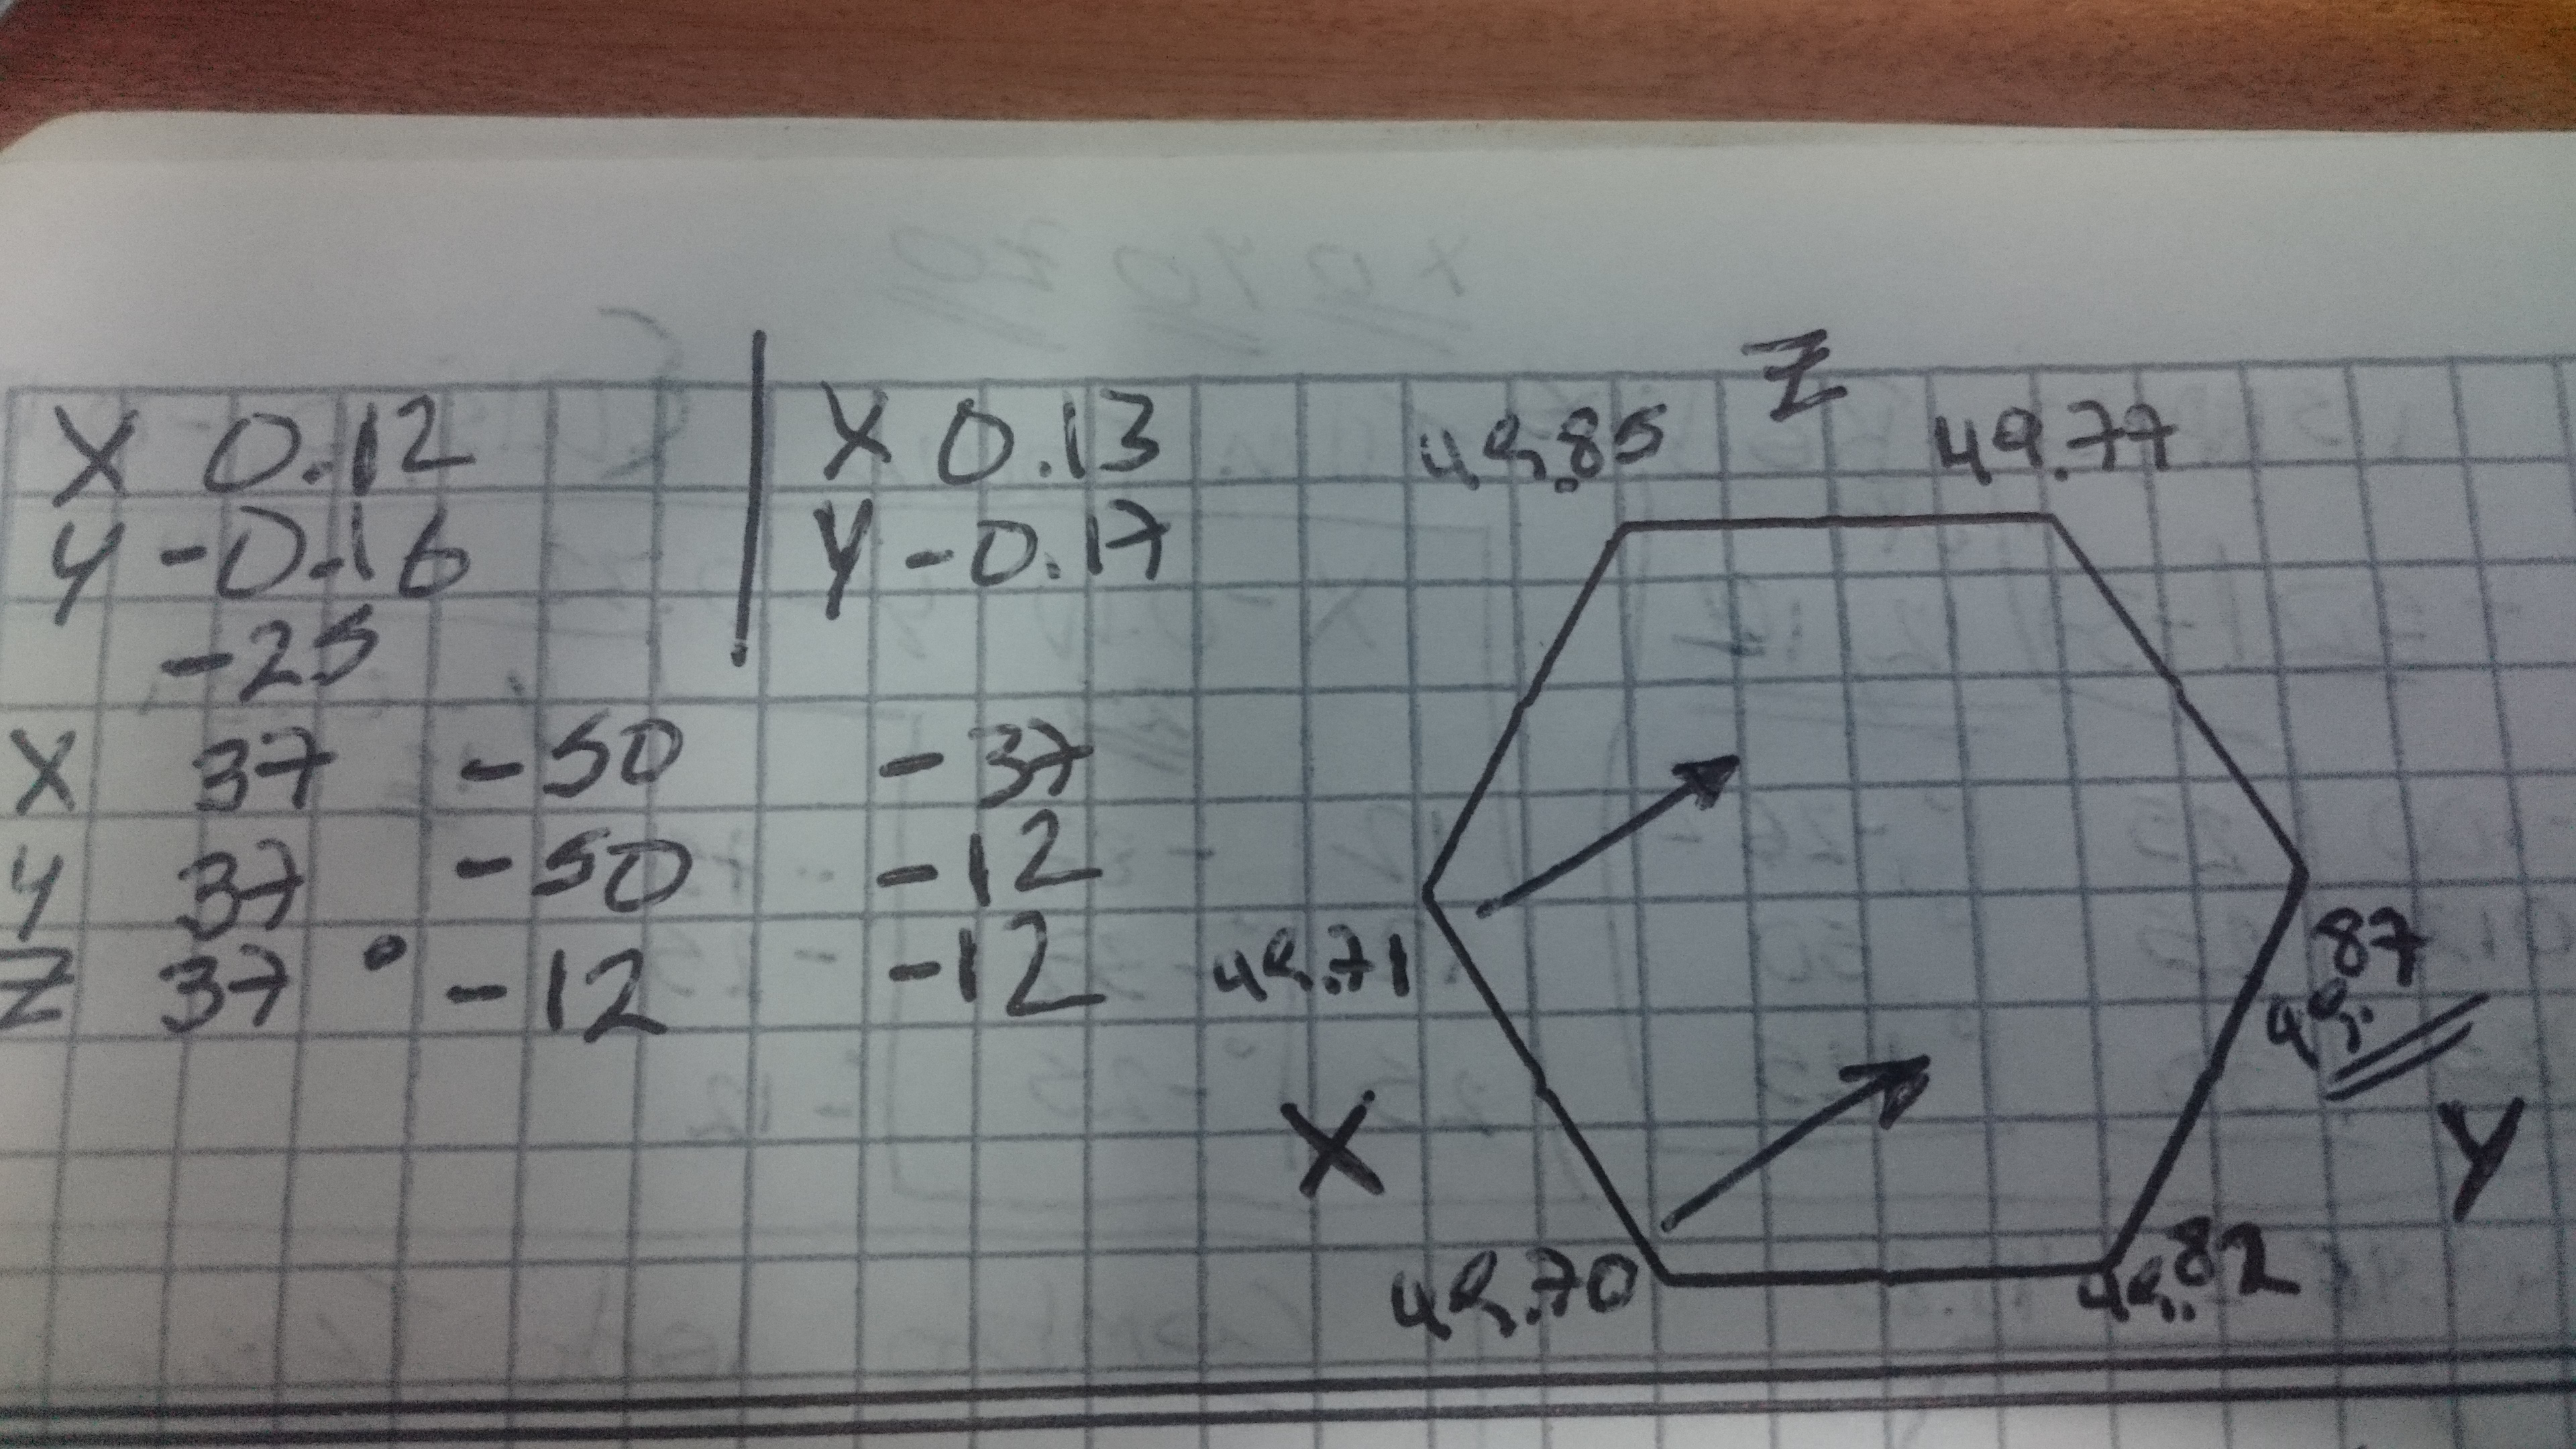 X 0.12
Y -0.16
-25
X 37 -50 -37
Y 37 -50 -12
Z 37 -12 -12
X 0.13
Y -0.17
Z
49.85 49.77
49.71
49.87
X
Y
49.70
49.82